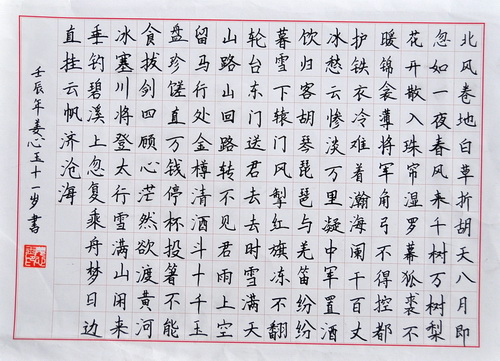 北风卷地白草折胡天八月即
忽如一夜春风来千树万树梨
花开散入珠帘湿罗幕狐裘不
暖锦衾薄将军角弓不得控都
护铁衣冷难着瀚海阑干百丈
冰愁云惨淡万里凝中军置酒
饮归客胡琴琵琶与羌笛纷纷
暮雪下辕门风掣红旗冻不翻
轮台东门送君去去时雪满天
山路山回路转不见君雨上空
留马行处金樽清酒斗十千玉
盘珍馐直万钱停杯投箸不能
食拔剑四顾心茫然欲渡黄河
冰塞川将登太行雪满山闲来
垂钓碧溪上忽复乘舟梦日边
直挂云帆济沧海
壬辰年姜心玉十一岁书